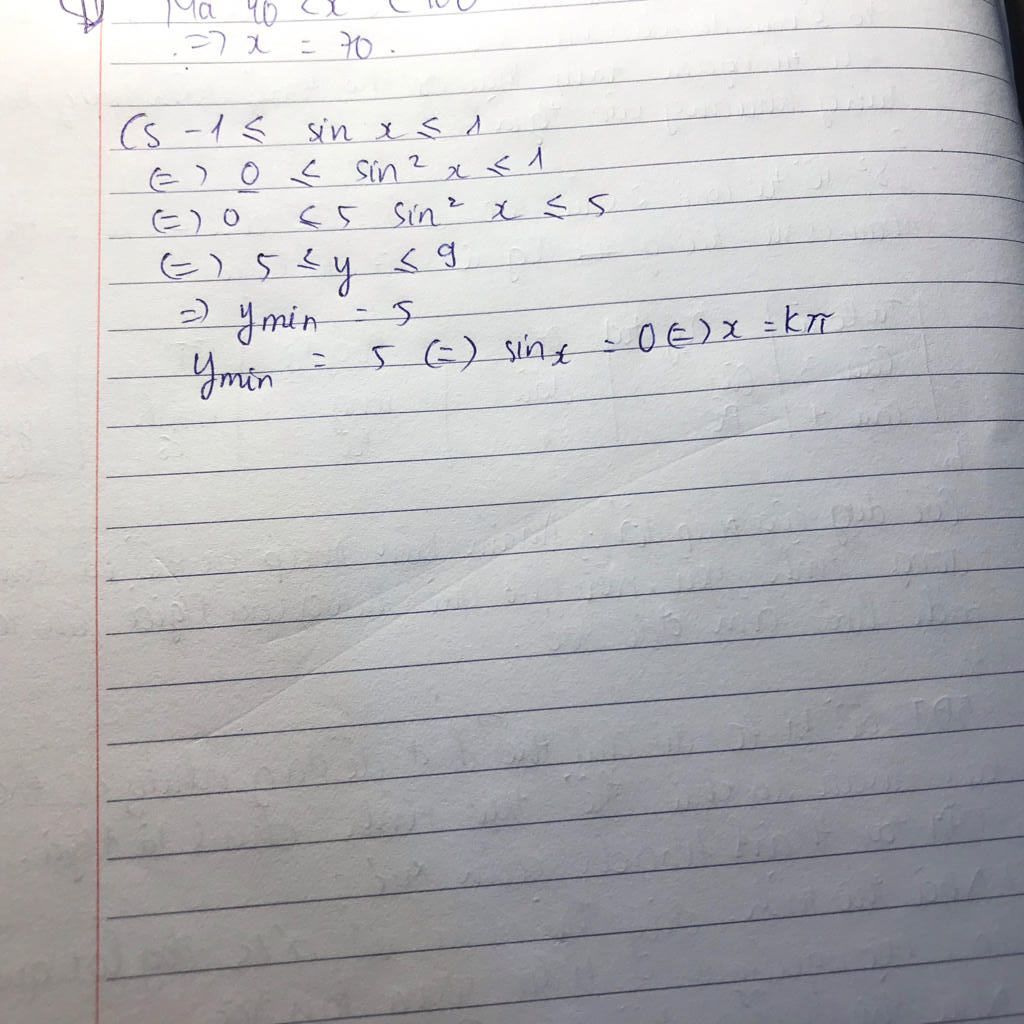 Mà 40 < x < 100
=> x = 70.
C5 -1 ≤ sin x ≤ 1
(=) 0 ≤ sin² x ≤ 1
(=) 0 ≤ 5 sin² x ≤ 5
(=) 5 ≤ y ≤ 9
=> ymin = 5
ymin = 5 (=) sin x = 0 (=) x = kπ